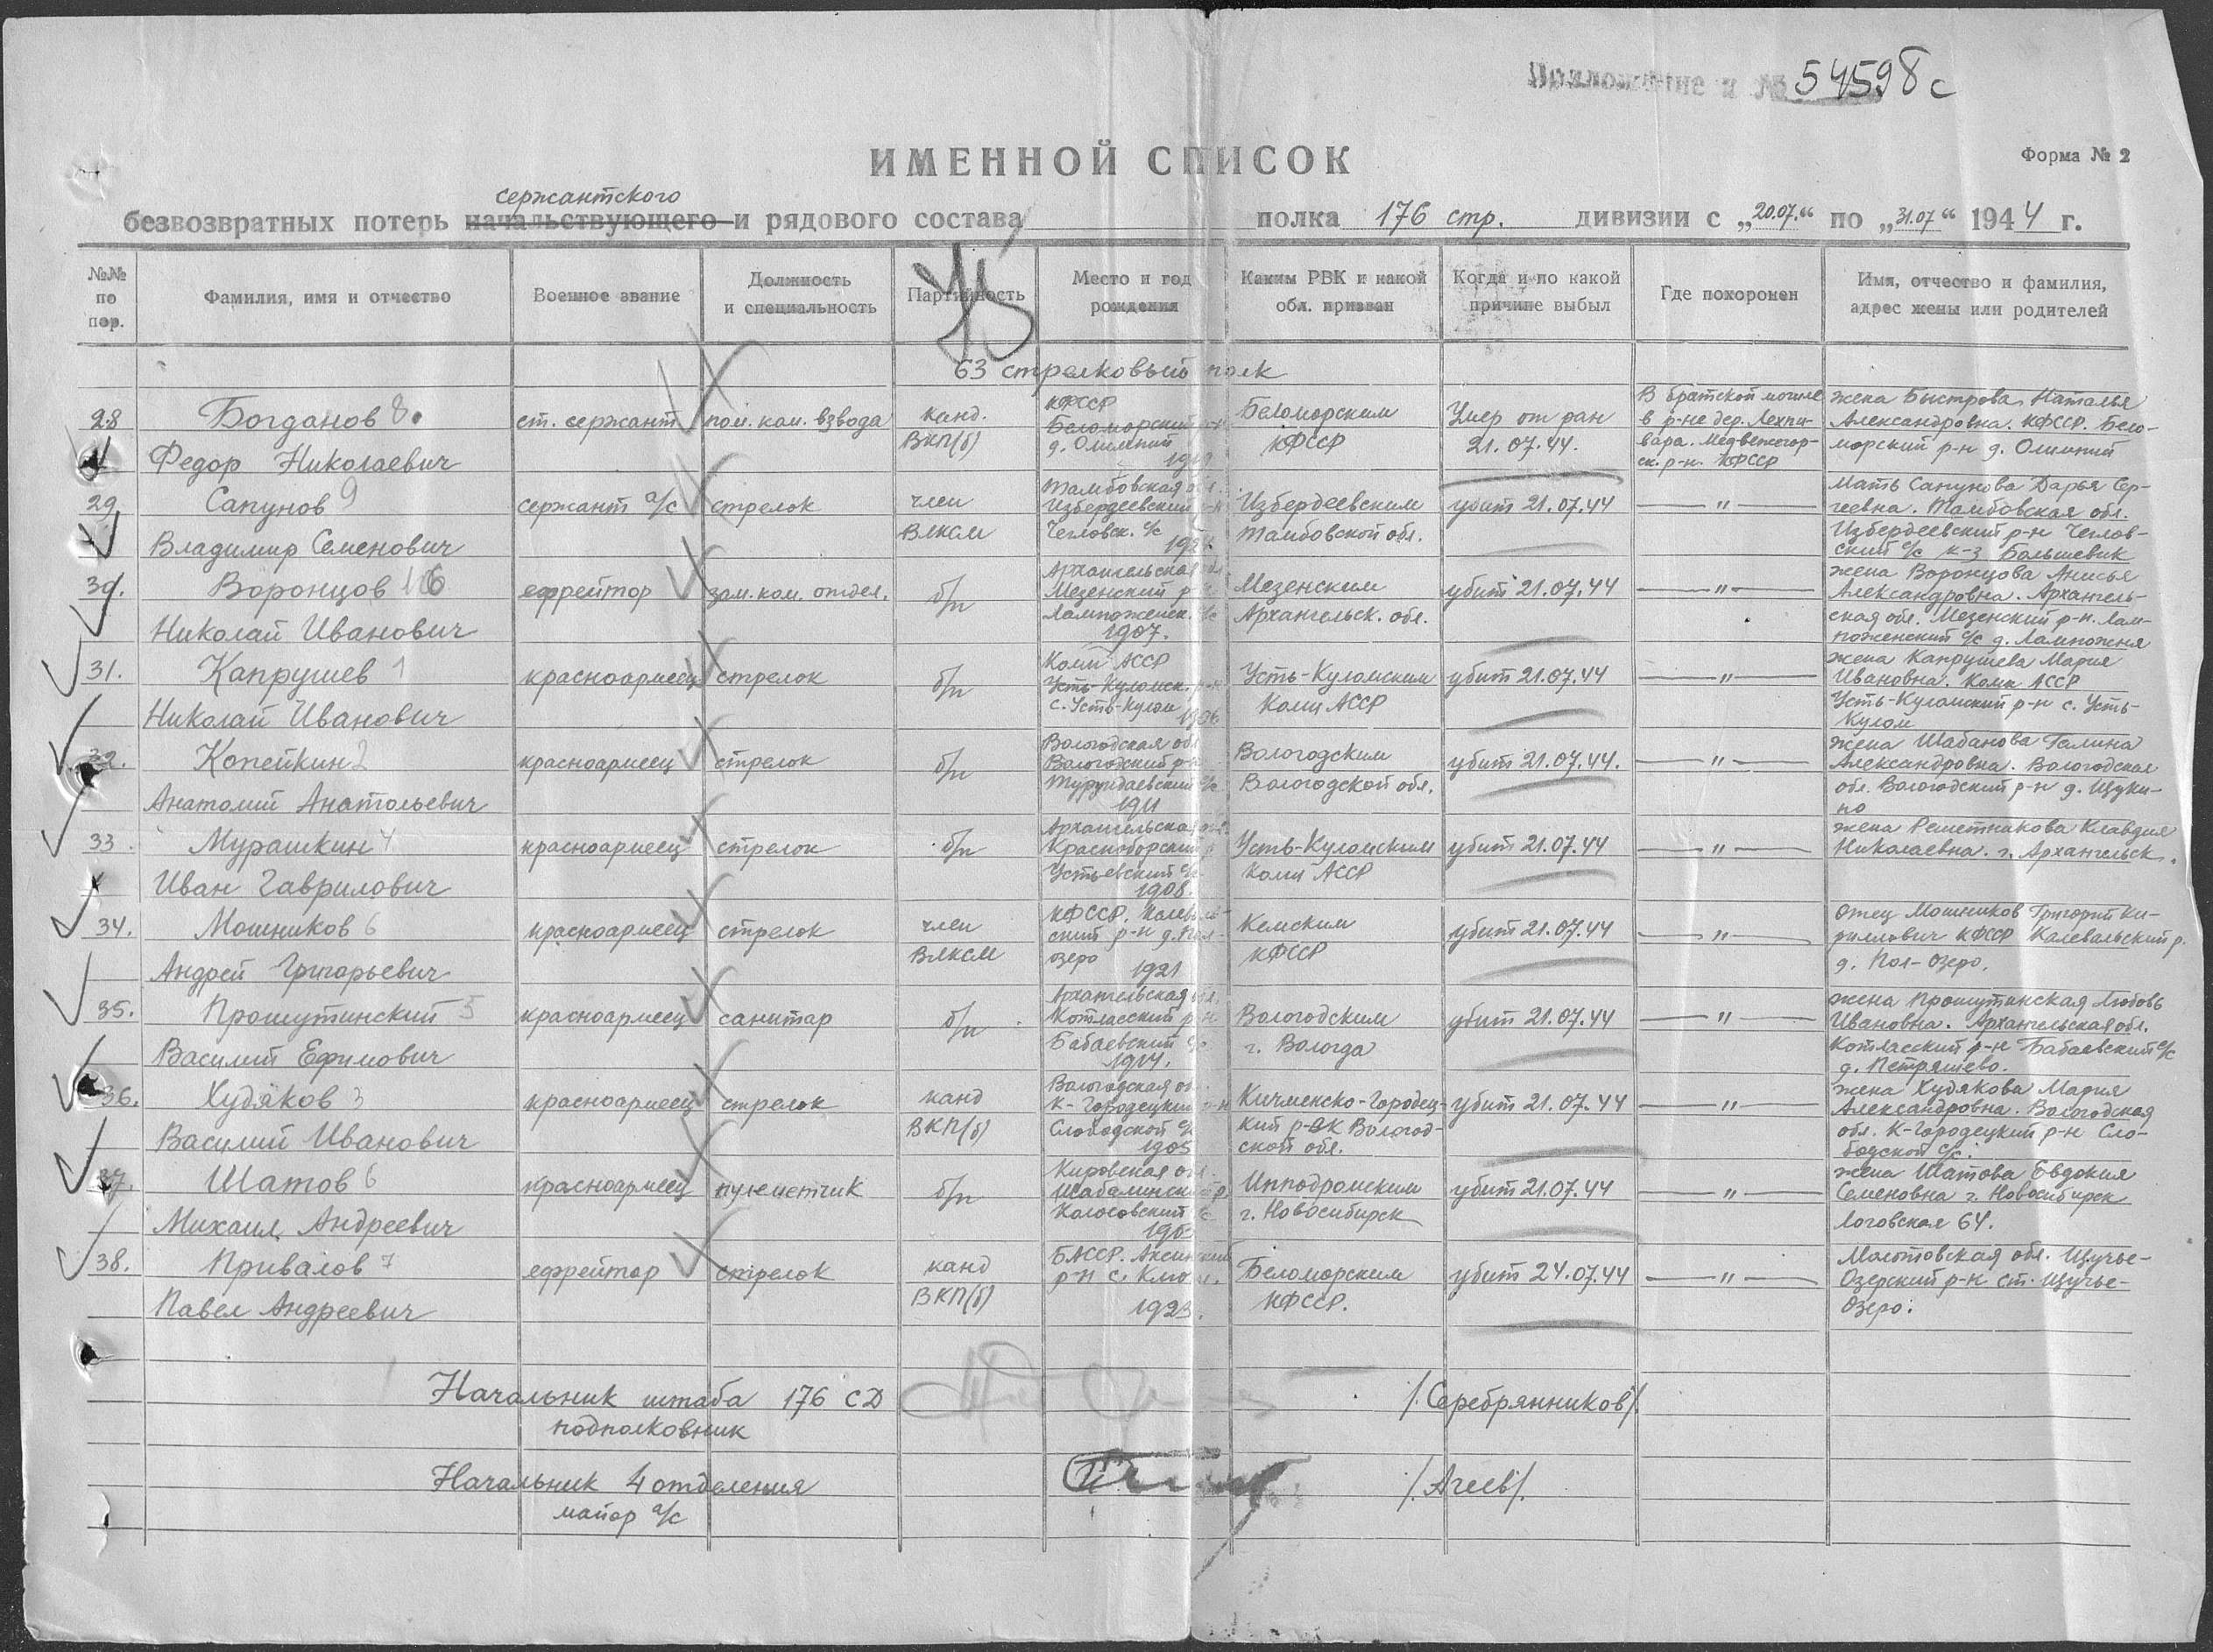 Приложение к № 54598с
ИМЕННОЙ СПИСОК
Форма № 2
сержантского
безвозвратных потерь начальствующего и рядового состава полка 176 стр. дивизии с „20.07.“ по „31.07“ 1944 г.
№№ по пор.
Фамилия, имя и отчество
Военное звание
Должность и специальность
Партийность
Место и год рождения
Каким РВК и какой обл. призван
Когда и по какой причине выбыл
Где похоронен
Имя, отчество и фамилия, адрес жены или родителей
63 стрелковый полк
28 Богданов 8
Федор Николаевич
ст. сержант
пом. ком. взвода
канд.
ВКП(б)
КФССР
Беломорский р-н
д.
Беломорским
КФССР
Умер от ран
21.07.44.
В братской могиле
в р-не дер. Лехта-
вара. Медвежегор-
ск. р-н. КФССР
жена Быстрова Наталья
Александровна. КФССР. Бело-
морский р-н д.
29 Сапунов 9
Владимир Семенович
сержант а/с
стрелок
член
ВЛКСМ
Тамбовская обл.
Избердеевский р-н
с/с
Избердеевским
Тамбовской обл.
убит 21.07.44
— " —
Мать Сапунова Дарья Сер-
геевна. Тамбовская обл.
Избердеевский р-н
ский с/с к-з Большевик
30. Воронцов 10
Николай Иванович
ефрейтор
зам. ком. отдел.
б/п
Архангельская обл
Мезенский р-н
Лампоженск. с/с
1907.
Мезенским
Архангельск. обл.
убит 21.07.44
— " —
жена Воронцова Анисья
Александровна. Архангель-
ская обл. Мезенский р-н. Лам-
поженский с/с д. Лампожня
31. Капрушев 1
Николай Иванович
красноармеец
стрелок
б/п
Коми АССР
Усть-Куломск. р-н
с. Усть-Кулом
1906
Усть-Куломским
Коми АССР
убит 21.07.44
— " —
жена Капрушева Мария
Ивановна. Коми АССР
Усть-Куломский р-н с. Усть-
Кулом
32. Копейкин 2
Анатолий Анатольевич
красноармеец
стрелок
б/п
Вологодская обл
Вологодский р-н
Турундаевский с/с
1911
Вологодским
Вологодской обл.
убит 21.07.44.
— " —
жена Шабанова Галина
Александровна. Вологодская
обл. Вологодский р-н д. Щуки-
но
33. Мурашкин 4
Иван Гаврилович
красноармеец
стрелок
б/п
Архангельская обл.
Красноборский р
Устьевский с/с
1908.
Усть-Куломским
Коми АССР
убит 21.07.44
— " —
жена Решетникова Клавдия
Николаевна. г. Архангельск.
34. Мошников 6
Андрей Григорьевич
красноармеец
стрелок
член
ВЛКСМ
КФССР. Калеваль-
ский р-н д. Пол-
озеро
1921
Кемским
КФССР
убит 21.07.44
— " —
Отец Мошников Григорий Ки-
риллович КФССР Калевальский р.
д. Пол-Озеро.
35. Прошутинский 5
Василий Ефимович
красноармеец
санитар
б/п
Архангельская обл.
Котласский р-н
Бабаевский с/с
1914.
Вологодским
г. Вологда
убит 21.07.44
— " —
жена Прошутинская Любовь
Ивановна. Архангельская обл.
Котласский р-н Бабаевский с/с
д. Петряшево.
36. Худяков 3
Василий Иванович
красноармеец
стрелок
канд
ВКП(б)
Вологодская обл.
К-Городецкий р-н
Слободской с/с
1905
Кичменско-Городец-
кий р-вк Вологод-
ской обл.
убит 21.07.44
— " —
жена Худякова Мария
Александровна. Вологодская
обл. К-Городецкий р-н Сло-
бодской с/с.
37. Шатов 6
Михаил Андреевич
красноармеец
пулеметчик
б/п
Кировская обл.
Шабалинский р.
Колосовский с/с
Ипподромским
г. Новосибирск
убит 21.07.44
— " —
жена Шатова Евдокия
Семеновна г. Новосибирск
Логовская 64.
38. Привалов 7
Павел Андреевич
ефрейтор
стрелок
канд
ВКП(б)
БАССР. Аскинский
р-н с. Ключи.
1923.
Беломорским
КФССР.
убит 24.07.44
— " —
Молотовская обл. Щучье-
Озерский р-н ст. Щучье-
Озеро.
Начальник штаба 176 СД
подполковник
/Серебрянников/.
Начальник 4 отделения
майор а/с
/Агеев/.